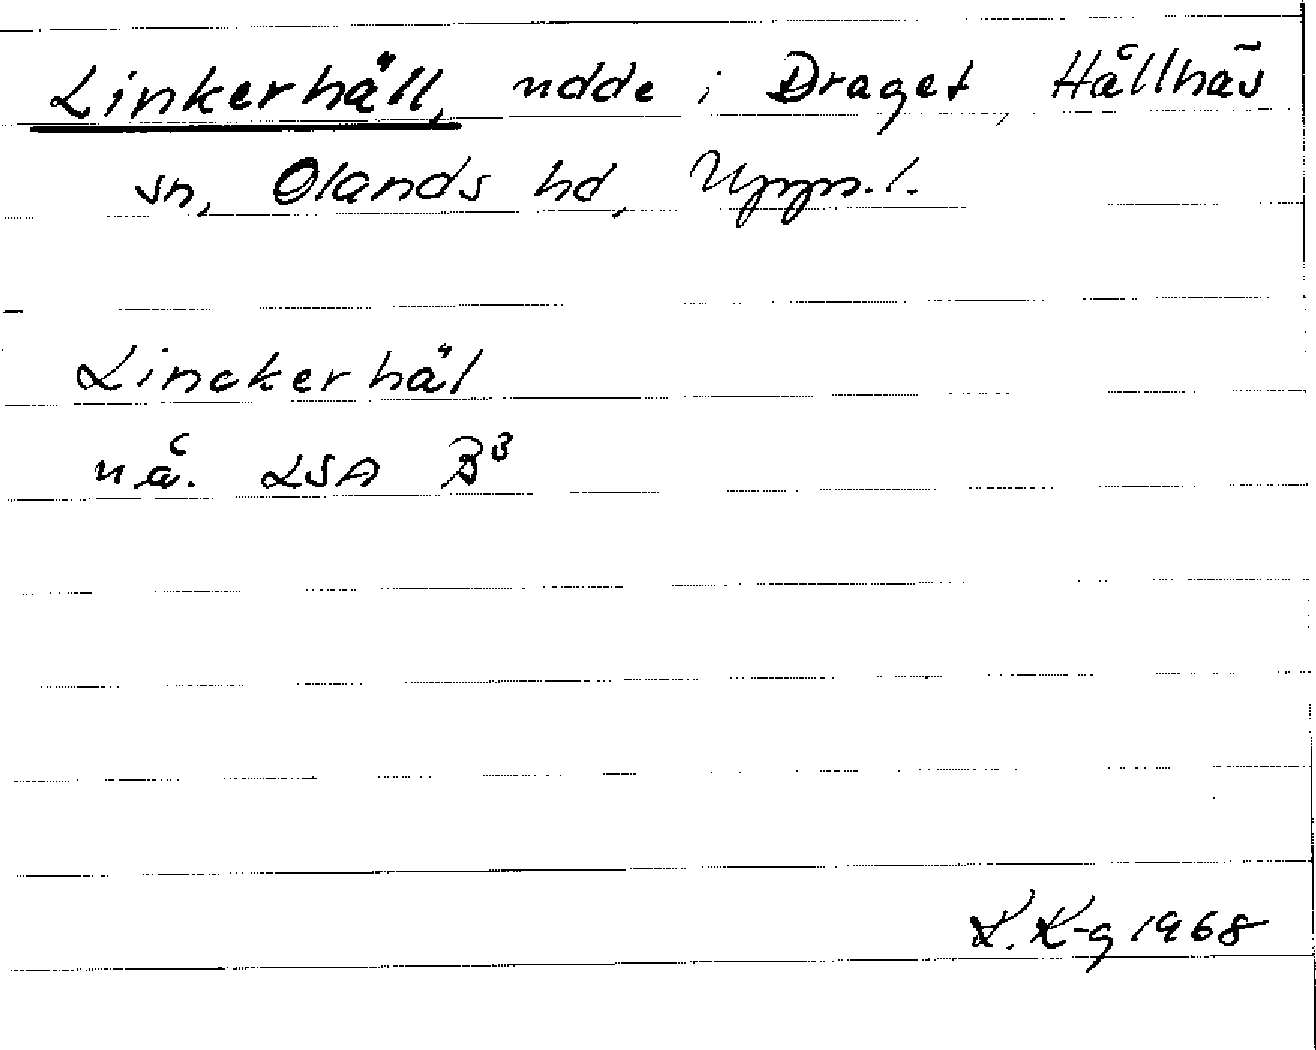 Linkerhäll, udde i Draget, Hållnäs
sn, Olands hd, Upps. l.
Linckerhäl
uå. LSA B³
K. K-g 1968